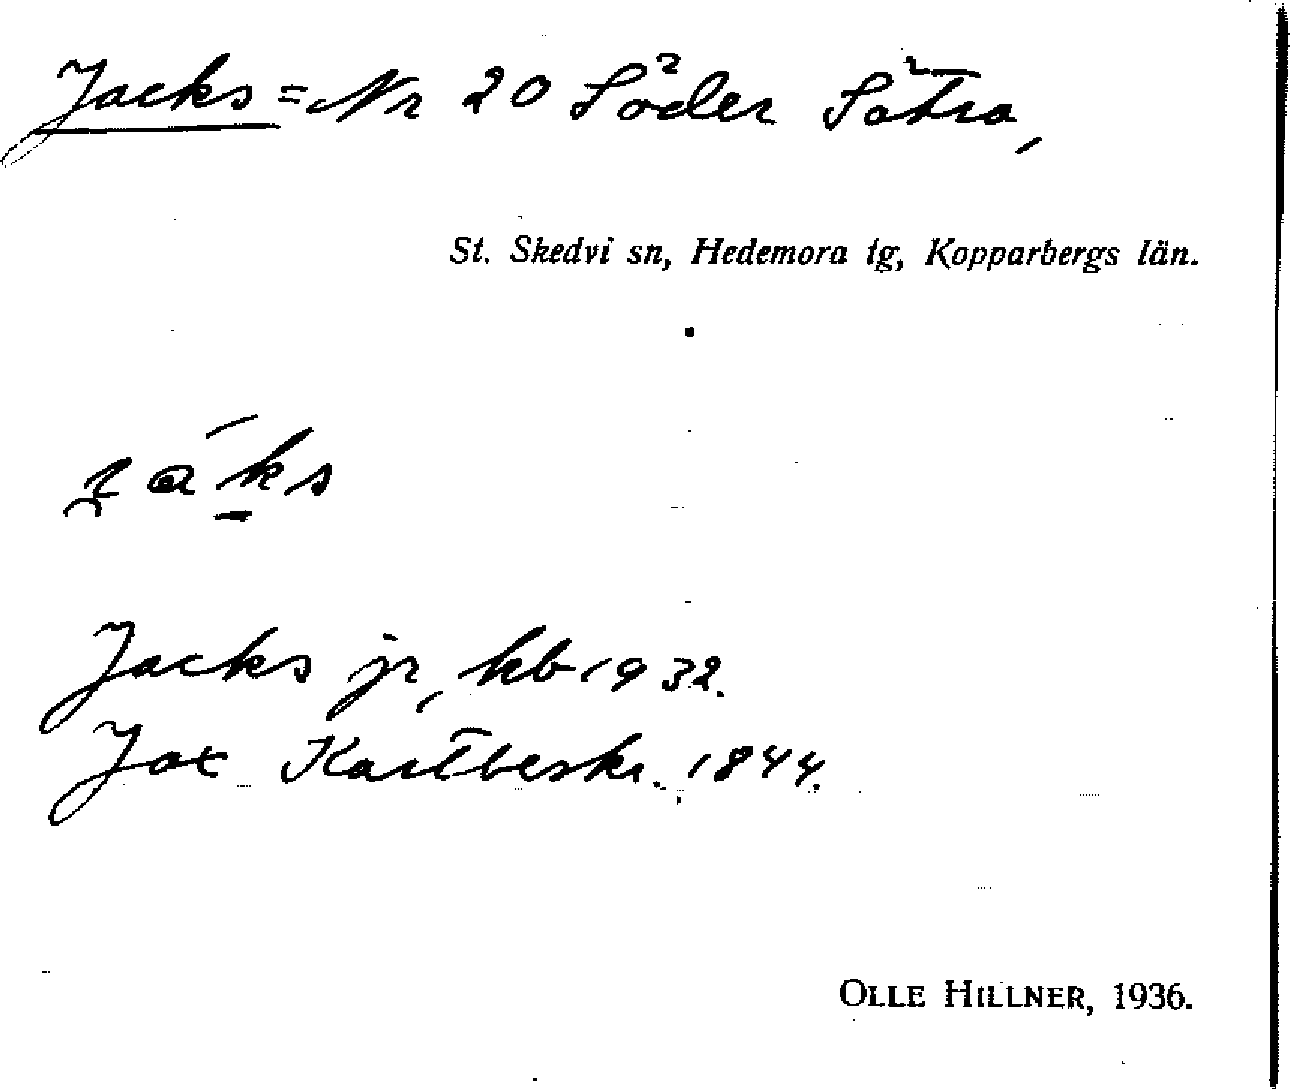 Jacks = Nr 20 Söder Sätra,
St. Skedvi sn, Hedemora tg, Kopparbergs län.
Jacks jr, kb 1932.
Jax Kartbeskr. 1844.
OLLE HILLNER, 1936.